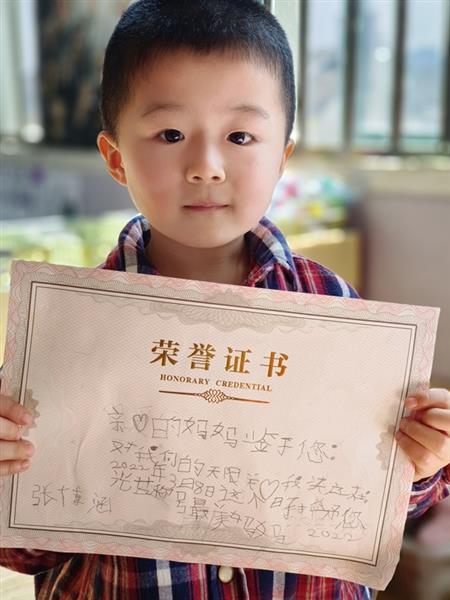 荣誉证书
HONORARY CREDENTIAL
亲♡的妈妈 鉴于您:
对我们的无限关♡
2022年3月8日这 日 您
最美妈妈
张 涵 2022